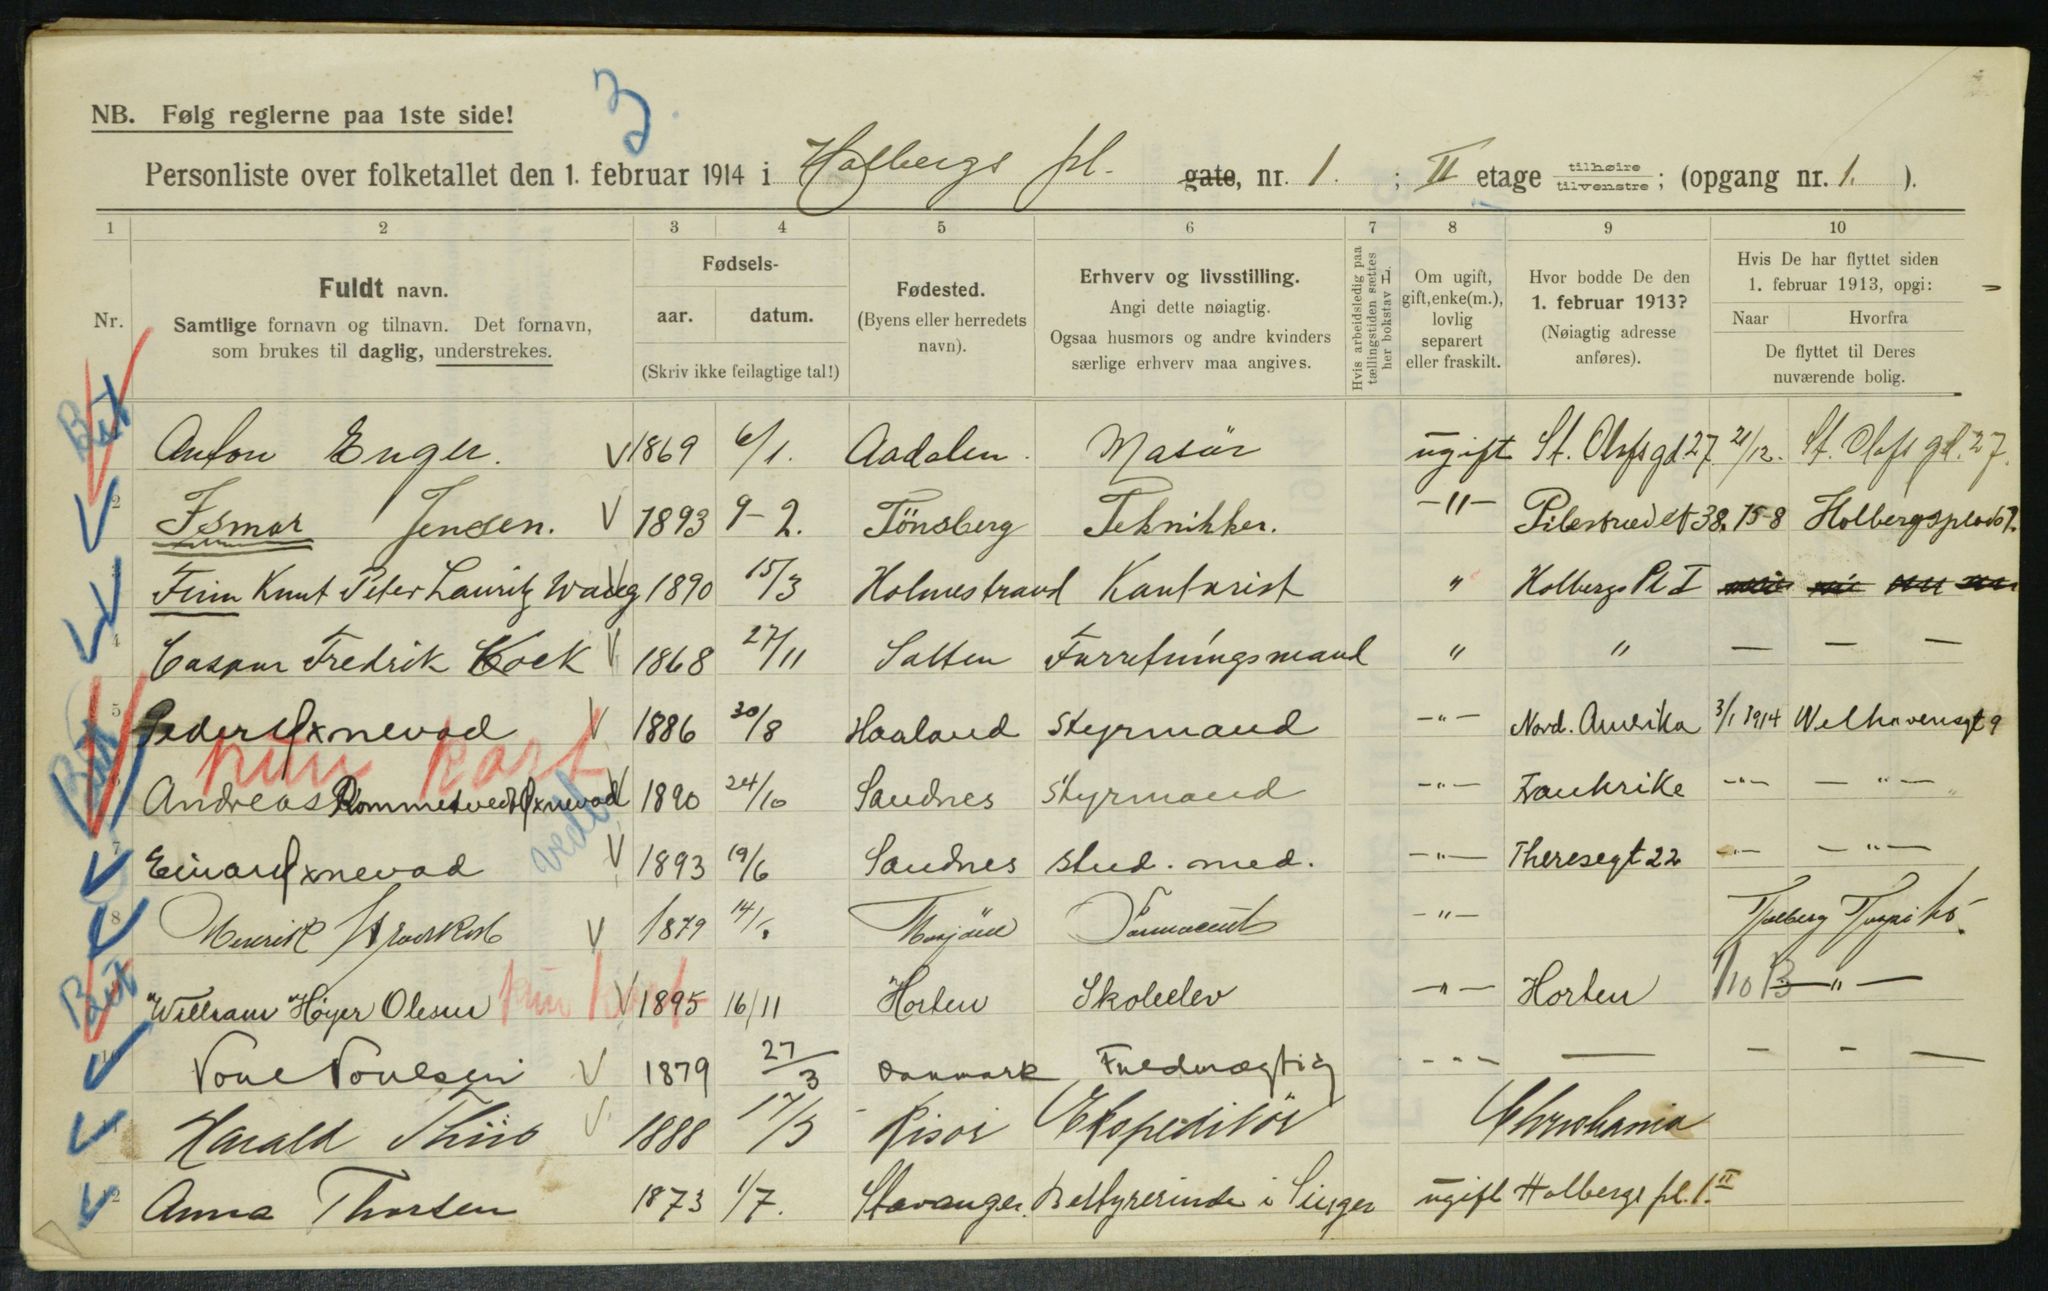 3.
NB. Følg reglerne paa 1ste side!
Personliste over folketallet den 1. februar 1914 i Holbergs pl. gate, nr. 1. ; II etage tilhøire tilvenstre ; (opgang nr. 1. ).
1 2 3 4 5 6 7 8 9 10
Nr.
Fuldt navn.
Samtlige fornavn og tilnavn. Det fornavn,
som brukes til daglig, understrekes.
Fødsels-
aar. datum.
(Skriv ikke feilagtige tal!)
Fødested.
(Byens eller herredets
navn).
Erhverv og livsstilling.
Angi dette nøiagtig.
Ogsaa husmors og andre kvinders
særlige erhverv maa angives.
Hvis arbeidsledig paa
tællingstiden sættes
her bokstav L.
Om ugift,
gift, enke(m.),
lovlig
separert
eller fraskilt.
Hvor bodde De den
1. februar 1913?
(Nøiagtig adresse
anføres).
Hvis De har flyttet siden
1. februar 1913, opgi:
Naar Hvorfra
De flyttet til Deres
nuværende bolig.
Anton Enger. V 1869 6/1. Aadalen. Masör ugift St. Olafsgd 27. 21/12. St. Olafs gd. 27.
2 Ismar Jensen. V 1893 9-2. Tönsberg Teknikker. -"- Pilestrædet 38. 15-8 Holbergsplads 1.
3 Finn Knut Peter Lauritz Waaeg 1890 15/3 Holmestrand Kontorist " Holbergs Pl I
4 Caspar Fredrik Kock V 1868 27/11 Salten Forretningsmand " " — — —
5 Peder Oxnevad V 1886 30/8 Haaland Styrmand -"- Nord. Amerika 3/1 1914 Welhavensgt 9
kun kort
6 Andreas Rommetvedt Oxnevad V 1890 24/10 Sandnes Styrmand -"- Frankrike -"- -"-
vedt
7 Einar Oxnevad V 1893 19/6 Sandnes stud. med. -"- Theresegt 22 -"- -"-
8 Henrik V 1879 14/ Farmaceut -"-
"William" Höyer Olesen kun kort V 1895 16/11 Horten Skoleelev -"- Horten 1/10 13 -"-
10 Poul Poulsen V 1879 27/3 Danmark Fuldmægtig - - - — — — —
Harald Thiis V 1888 17/3 Risör Ekspeditör Christiania
12 Anna Thorsen 1873 1/7. Stavanger. Bestyrerinde i Singer ugift Holbergs pl. 1. II